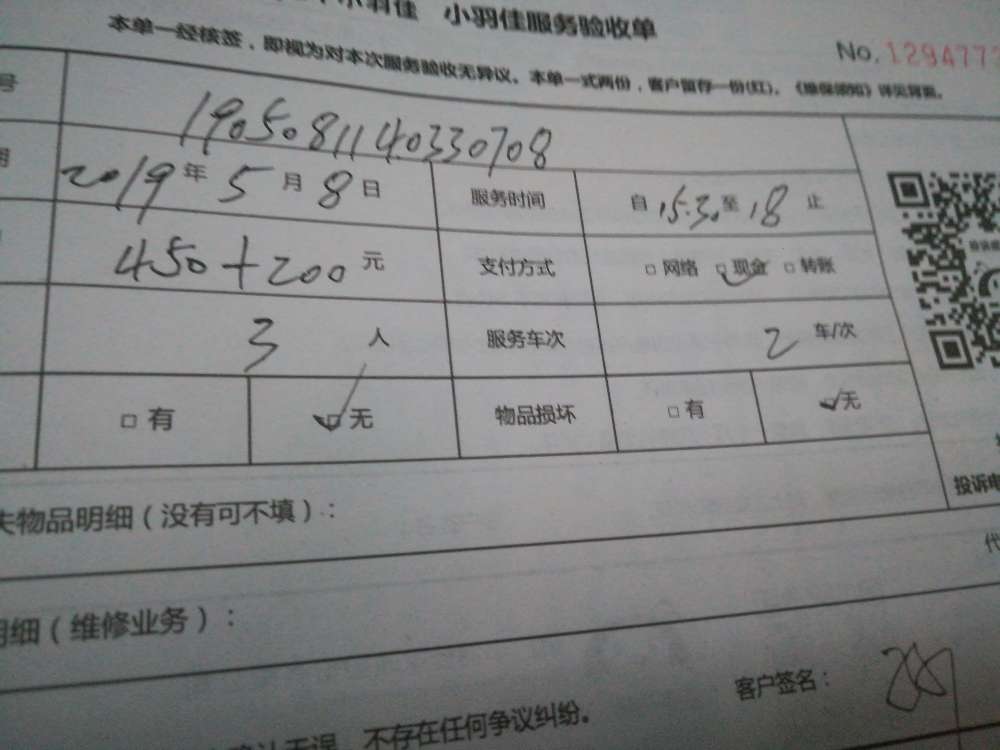 小羽佳 小羽佳服务验收单
No.1294777
本单一经核签，即视为对本次服务验收无异议。本单一式两份，客户留存一份(红)。《维保须知》详见背面。
号 1905081140330708
期 2019年5月8日 服务时间 自15:30至18止
450+200元 支付方式 □网络 ☑现金 □转账
3人 服务车次 2车/次
□有 ☑无 物品损坏 □有 ☑无
失物品明细（没有可不填）：
投诉电
明细（维修业务）：
代
客户签名：
确认无误，不存在任何争议纠纷。